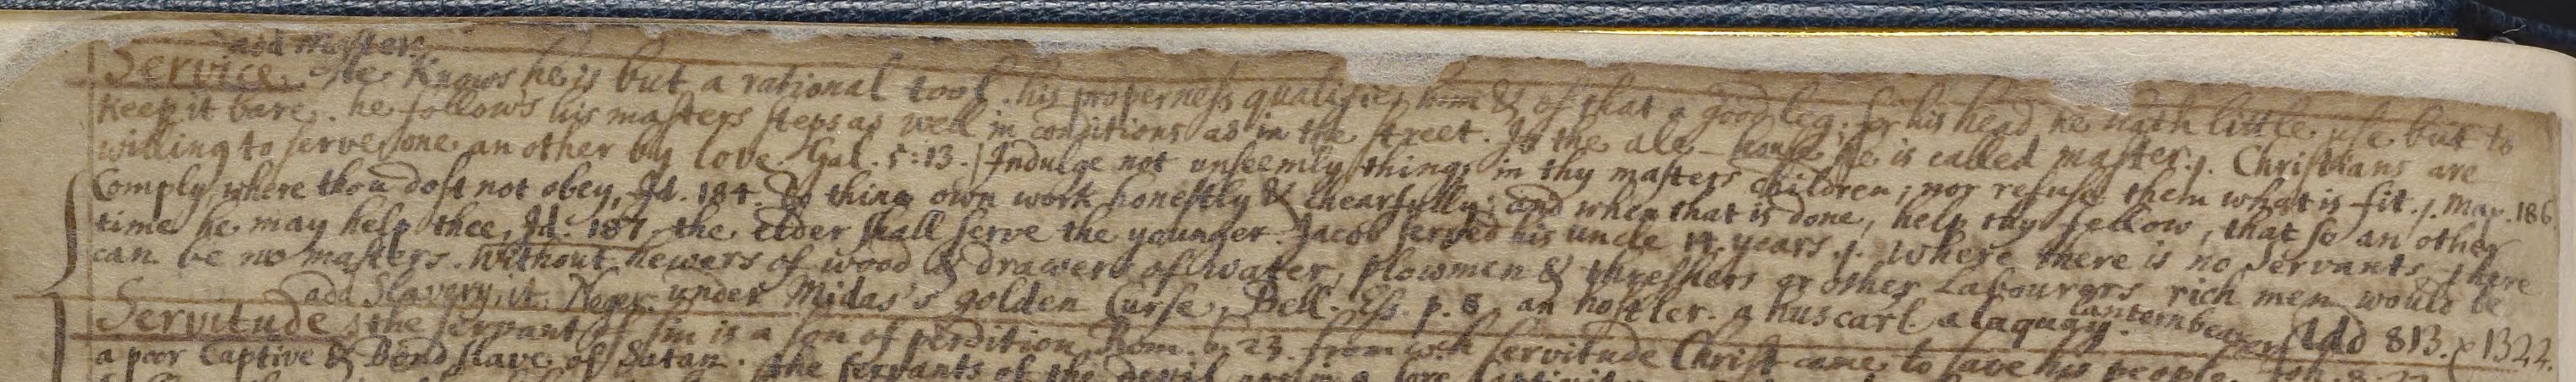 add master.
Service. He Knows he is but a rational tool. his properness qualifies him & of that a good leg. for his head he hath little use but to
keep it bare. he follows his masters steps as well in conditions as in the street. In the ale-house he is called master. /. Christians are
willing to serve one an other by love. Gal. 5:13. / Indulge not unseemly things in thy masters children; nor refuse them what is fit. /. Map. 186
Comply, where thou dost not obey, Id. 184. Do thine own work honestly & chearfully; and when that is done, help thy fellow, that so an other
time he may help thee, Id. 187. the elder shall serve the younger. Jacob served his uncle 14 years. /. Where there is no Servants, there
can be no masters. Without hewers of wood & drawers of water, plowmen & threshers or other Labourers rich men would be
under Midas's golden Curse, Bell. Ess. p. 8. an hostler. a huscarl. a laquay. Lanternbearer Add 813. x 1322.
add Slavery, it. Neger.
Servitude, the servant of sin is a son of perdition Rom. 6. 23. from wch servitude Christ came to save his people. Joh. 8.
a poor Captive & Bond slave of Satan. the servants of the devil are in a sore